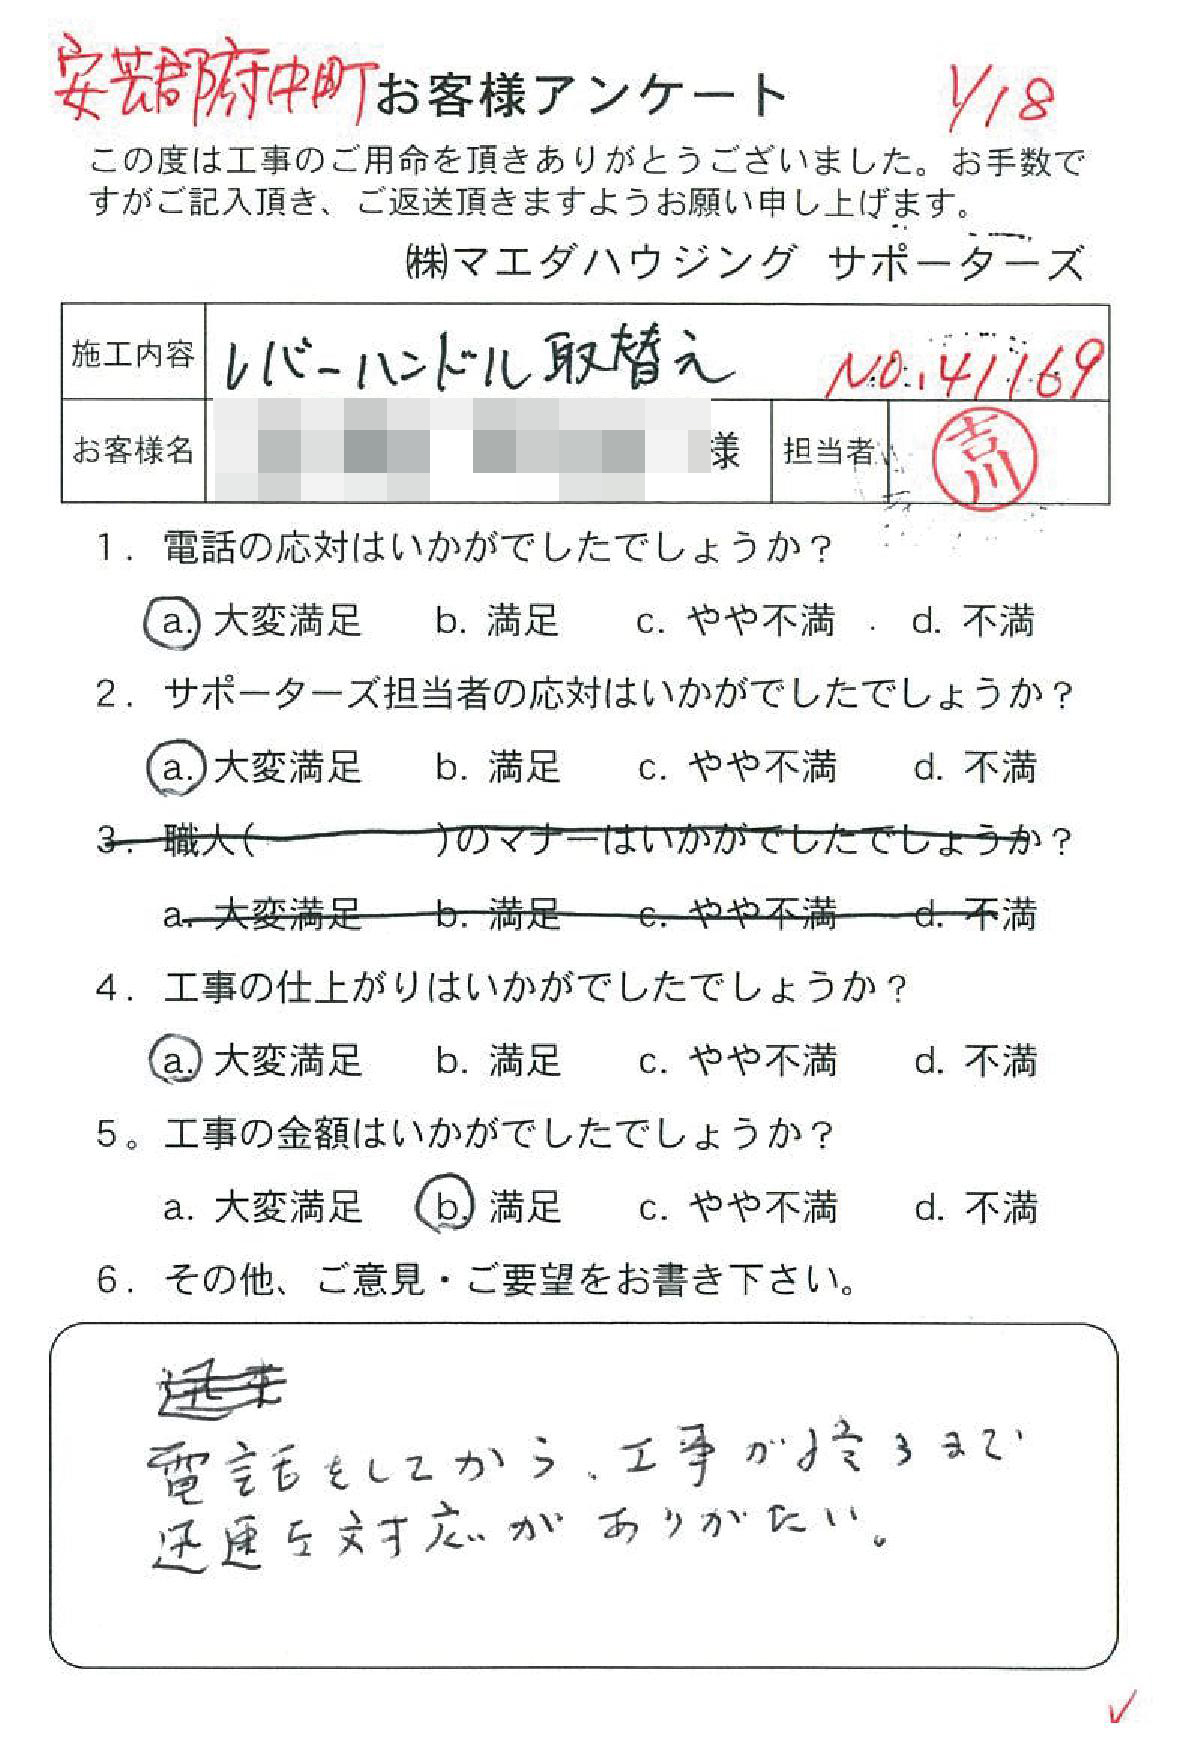 安芸郡府中町 お客様アンケート 1/18
この度は工事のご用命を頂きありがとうございました。お手数で
すがご記入頂き、ご返送頂きますようお願い申し上げます。
㈱マエダハウジング サポーターズ
施工内容 レバーハンドル取替え NO.41169
お客様名 様 担当者 吉川
1. 電話の応対はいかがでしたでしょうか?
a. 大変満足 b. 満足 c. やや不満 d. 不満
2. サポーターズ担当者の応対はいかがでしたでしょうか?
a. 大変満足 b. 満足 c. やや不満 d. 不満
3. 職人( )のマナーはいかがでしたでしょうか?
a. 大変満足 b. 満足 c. やや不満 d. 不満
4. 工事の仕上がりはいかがでしたでしょうか?
a. 大変満足 b. 満足 c. やや不満 d. 不満
5。工事の金額はいかがでしたでしょうか?
a. 大変満足 b. 満足 c. やや不満 d. 不満
6. その他、ご意見・ご要望をお書き下さい。
電話をしてから、工事が終るまで
迅速な対応がありがたい。